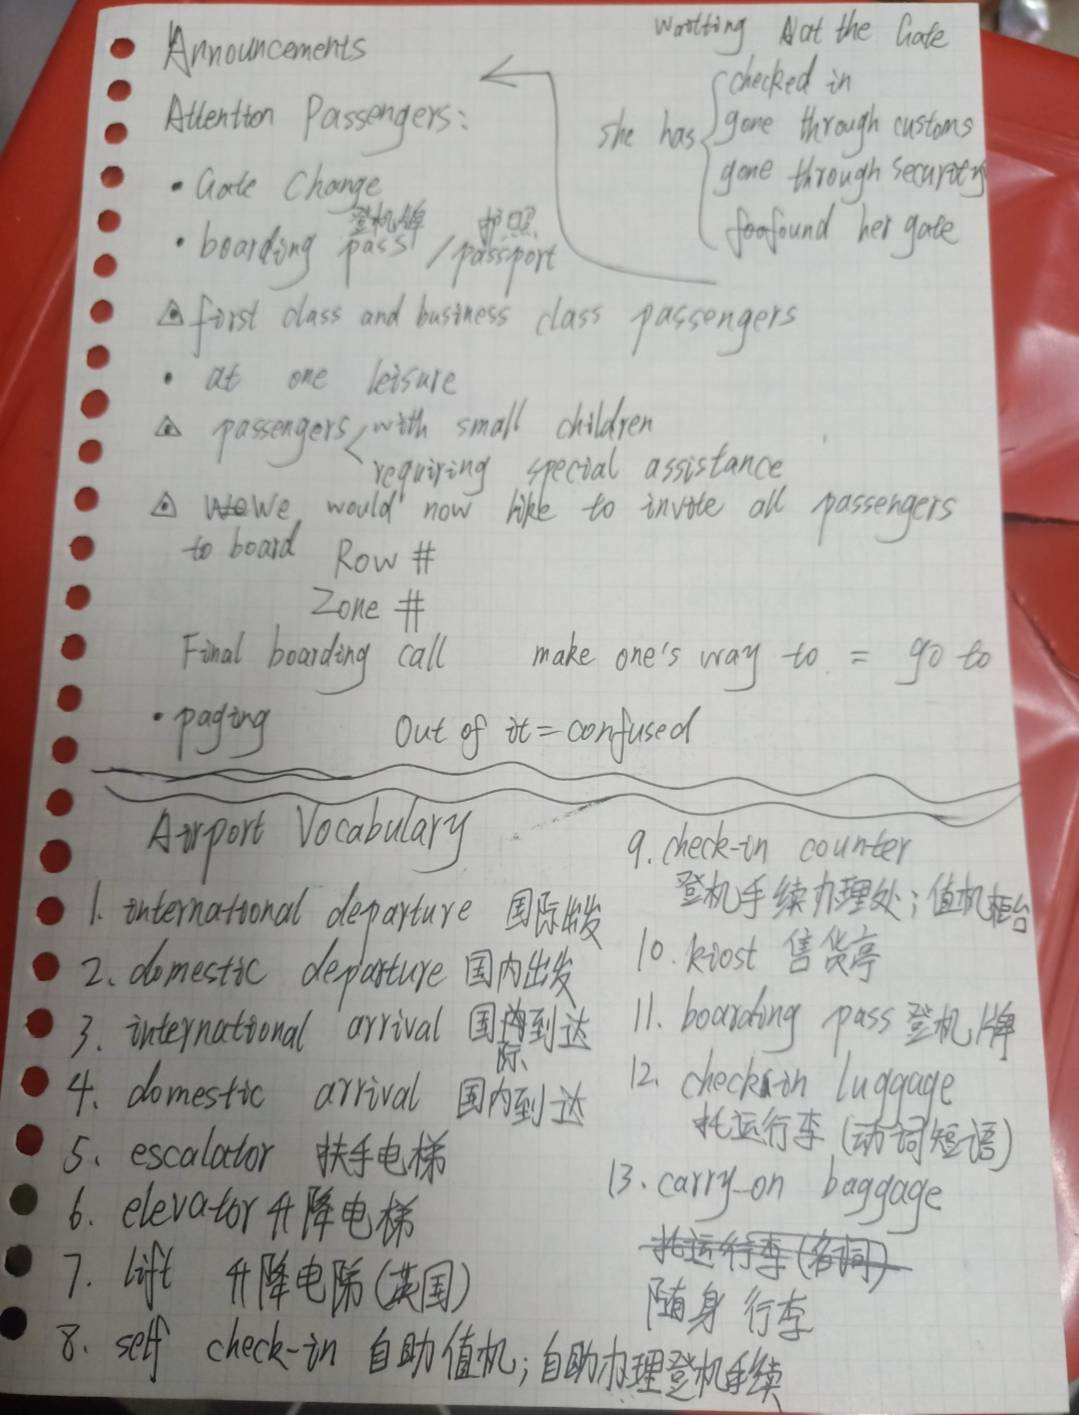 Announcements
Attention Passengers:
• Gate Change
登机牌 护照
• boarding pass / passport
Waiting at the Gate
she has
checked in
gone through customs
gone through security
found her gate
first class and business class passengers
• at one leisure
passengers with small children
requiring special assistance
We would now like to invite all passengers
to board Row #
Zone #
Final boarding call make one's way to = go to
• paging Out of it = confused
Airport Vocabulary
1. international departure 国际出发
2. domestic departure 国内出发
3. international arrival 国际到达
4. domestic arrival 国内到达
5. escalator 扶手电梯
6. elevator 升降电梯
7. lift 升降电梯(英国)
8. self check-in 自助值机;自助办理登机手续
9. check-in counter
登机手续办理处;值机柜台
10. kiost 售货亭
11. boarding pass 登机牌
12. check-in luggage
托运行李(动词短语)
13. carry-on baggage
托运行李(名词)
随身行李